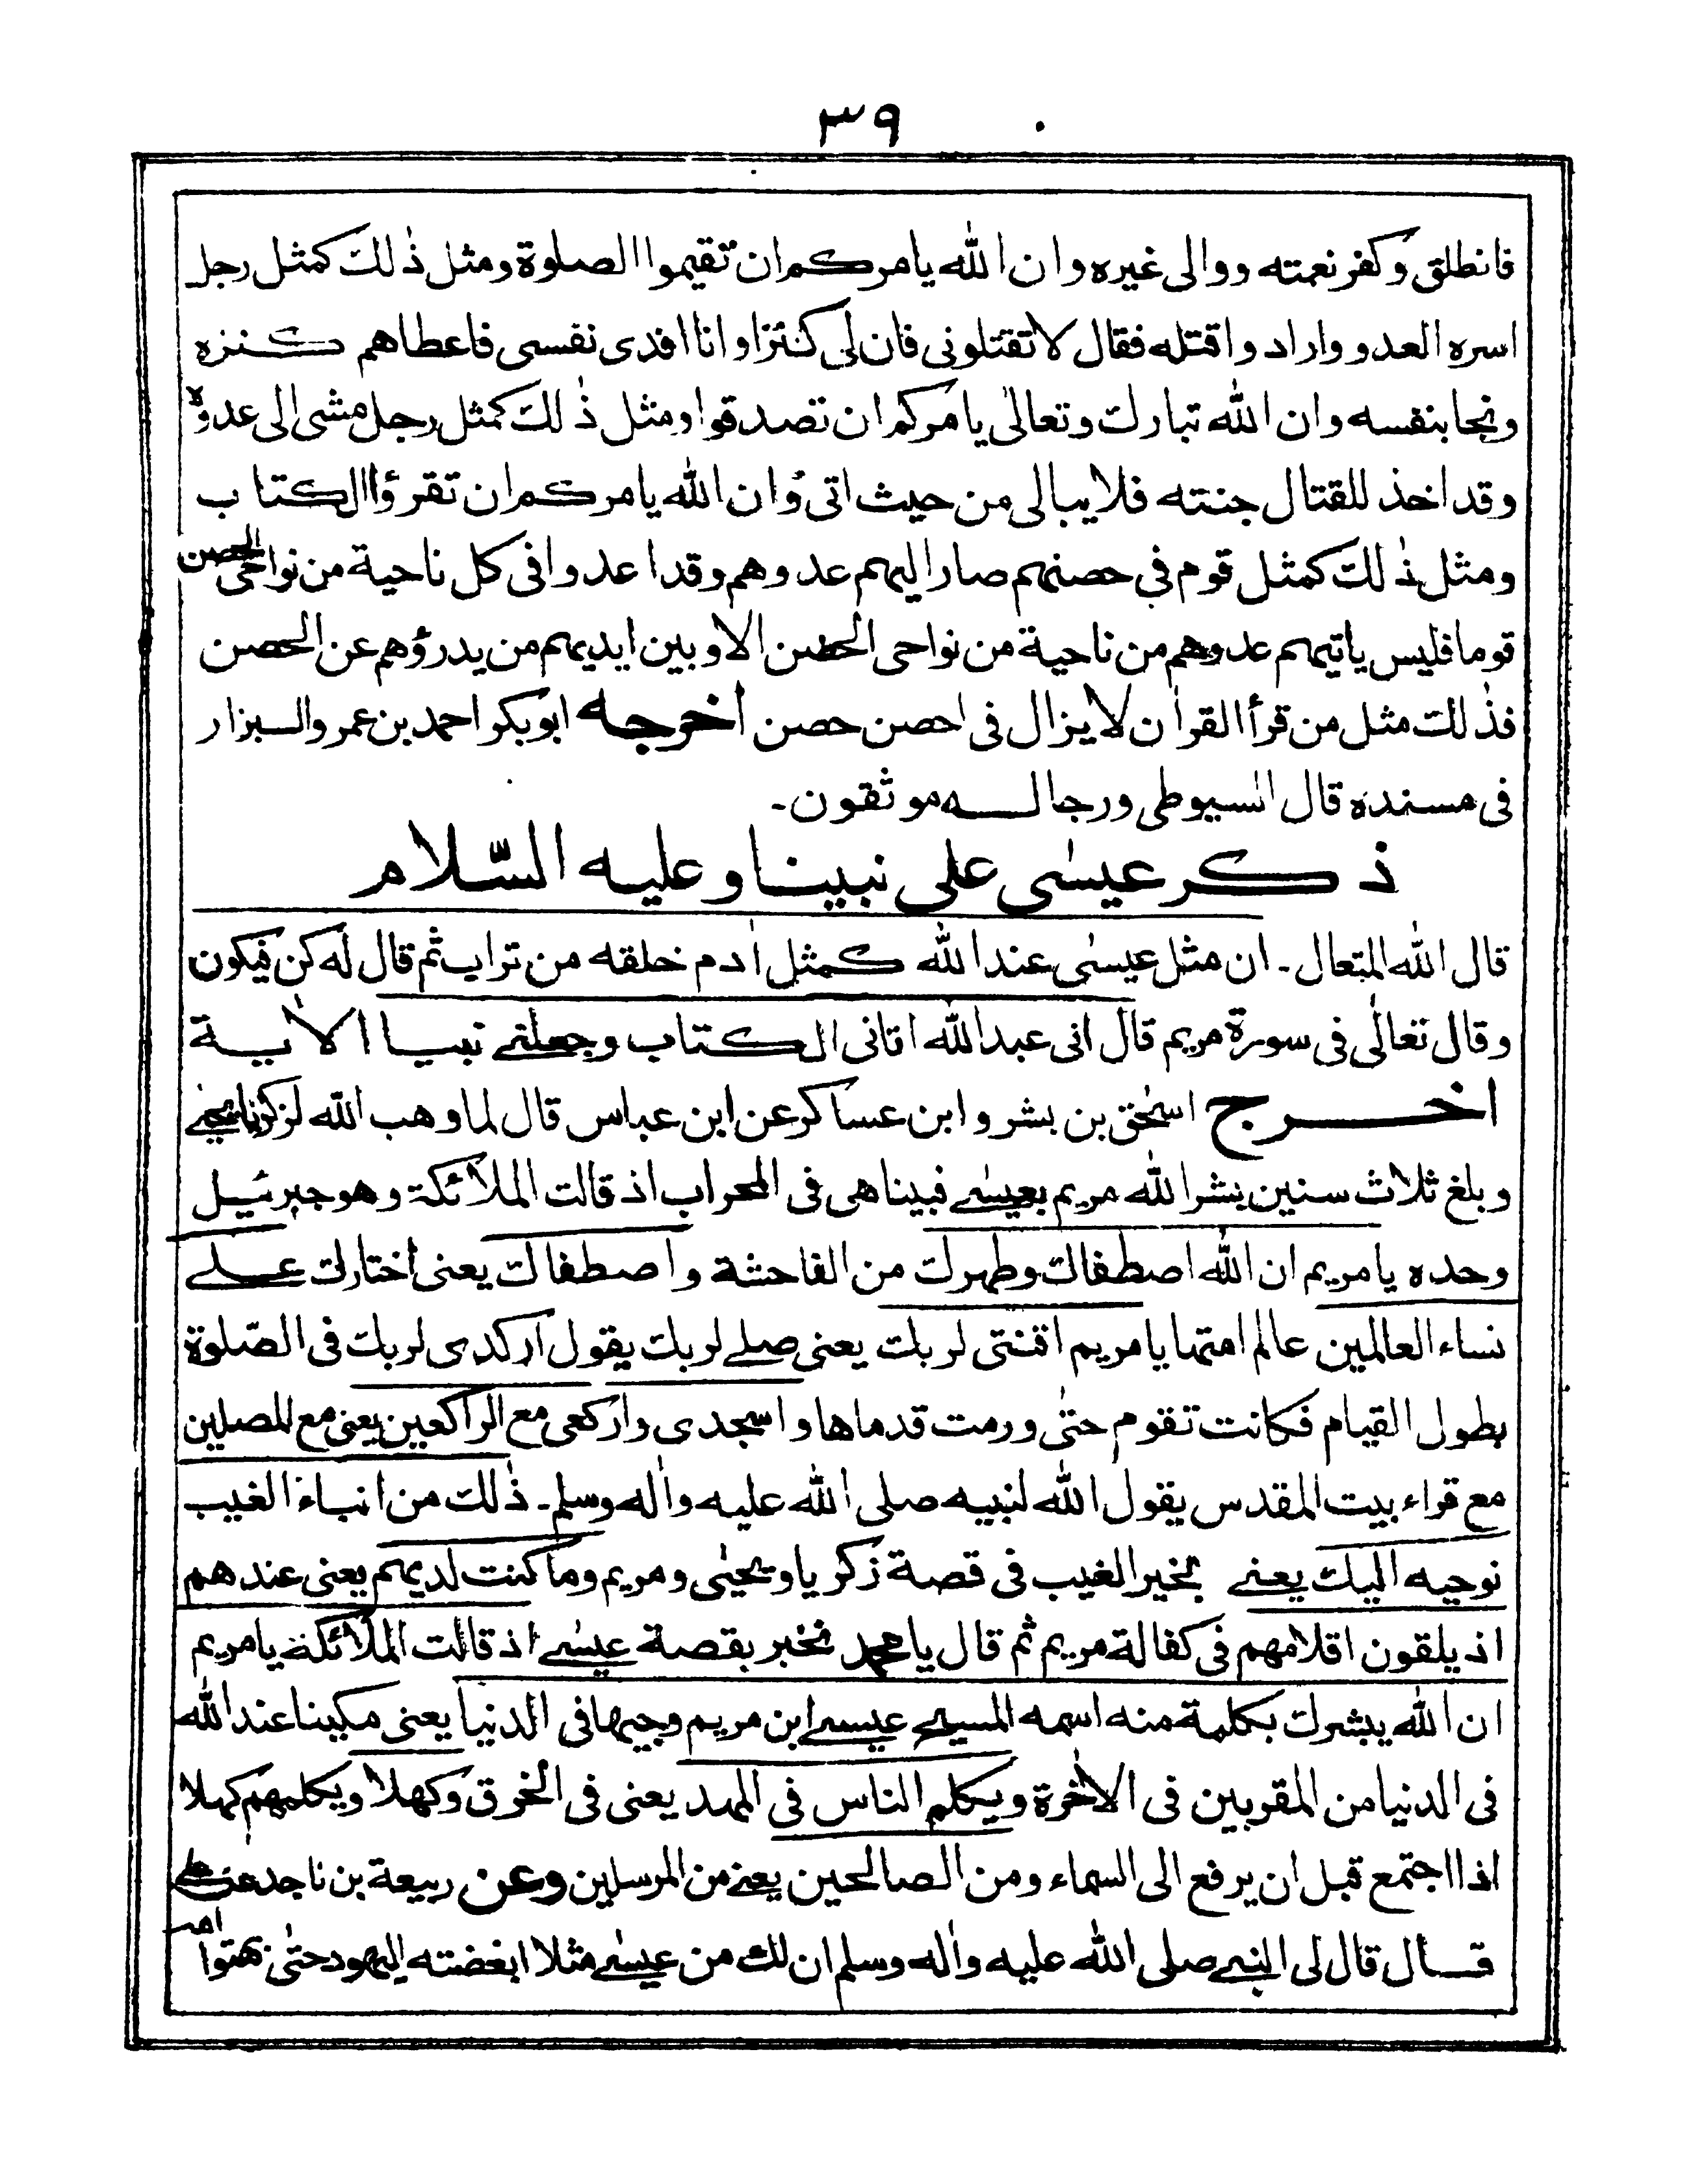 ٣٩
فانطلق وكفر نعمته ووالى غيره وان الله يامركم ان تقيموا الصلوة ومثل ذلك كمثل رجل
اسره العدو واراد واقتله فقال لا تقتلونى فان لى كنزا وانا افدى نفسى فاعطاهم كنزه
ونجا بنفسه وان الله تبارك وتعالى يامركم ان تصدقوا ومثل ذلك كمثل رجل مشى الى عدوه
وقد اخذ للقتال جنته فلا يبالى من حيث اتى وان الله يامركم ان تقرؤا الكتاب
ومثل ذلك كمثل قوم فى حصنهم صار اليهم عدوهم وقد اعدوا فى كل ناحية من نواحى الحصن
قوما فليس ياتيهم عدوهم من ناحية من نواحى الحصن الا وبين ايديهم من يدرؤهم عن الحصن
فذلك مثل من قرأ القرأن لا يزال فى احصن حصن اخرجه ابوبكر احمد بن عمر والبزار
فى مسنده قال السيوطى ورجاله موثقون۔
ذكر عيسى على نبينا وعليه السّلام
قال الله المتعال۔ ان مثل عيسى عند الله كمثل ادم خلقه من تراب ثم قال له كن فيكون
وقال تعالى فى سورة مريم قال انى عبد الله اتانى الكتاب وجعلنے نبيا الأية
اخرج اسحق بن بشر وابن عساكر عن ابن عباس قال لما وهب الله لزكريا يحيے
وبلغ ثلاث سنين بشر الله مريم بعيسے فبينا هى فى المحراب اذ قالت الملائكة وهو جبرئيل
وحده يا مريم ان الله اصطفاك وطهرك من الفاحشة واصطفاك يعنى اختارك علے
نساء العالمين عالم امتها يا مريم اقنتى لربك يعنى صلے لربك يقول اركدى لربك فى الصّلوة
بطول القيام فكانت تقوم حتى ورمت قدماها واسجدى واركعى مع الراكعين يعنى مع المصلين
مع قراء بيت المقدس يقول الله لنبيه صلى الله عليه واله وسلم۔ ذلك من انباء الغيب
نوحيه اليك يعنے بخبر الغيب فى قصة زكريا ويحيى ومريم وما كنت لديهم يعنى عندهم
اذ يلقون اقلامهم فى كفالة مريم ثم قال يا محمد نخبر بقصة عيسے اذ قالت الملائكة يا مريم
ان الله يبشرك بكلمة منه اسمه المسيح عيسے ابن مريم وجيها فى الدنيا يعنى مكينا عند الله
فى الدنيا من المقربين فى الأخرة ويكلم الناس فى المهد يعنى فى الخرق وكهلا ويكلمهم كهلا
اذا اجتمع قبل ان يرفع الى السماء ومن الصالحين يعنے من المرسلين وعن ربيعة بن ناجد عن علے
قال قال لى النبے صلى الله عليه واله وسلم ان لك من عيسے مثلا ابغضته اليهود حتى بهتوا امه